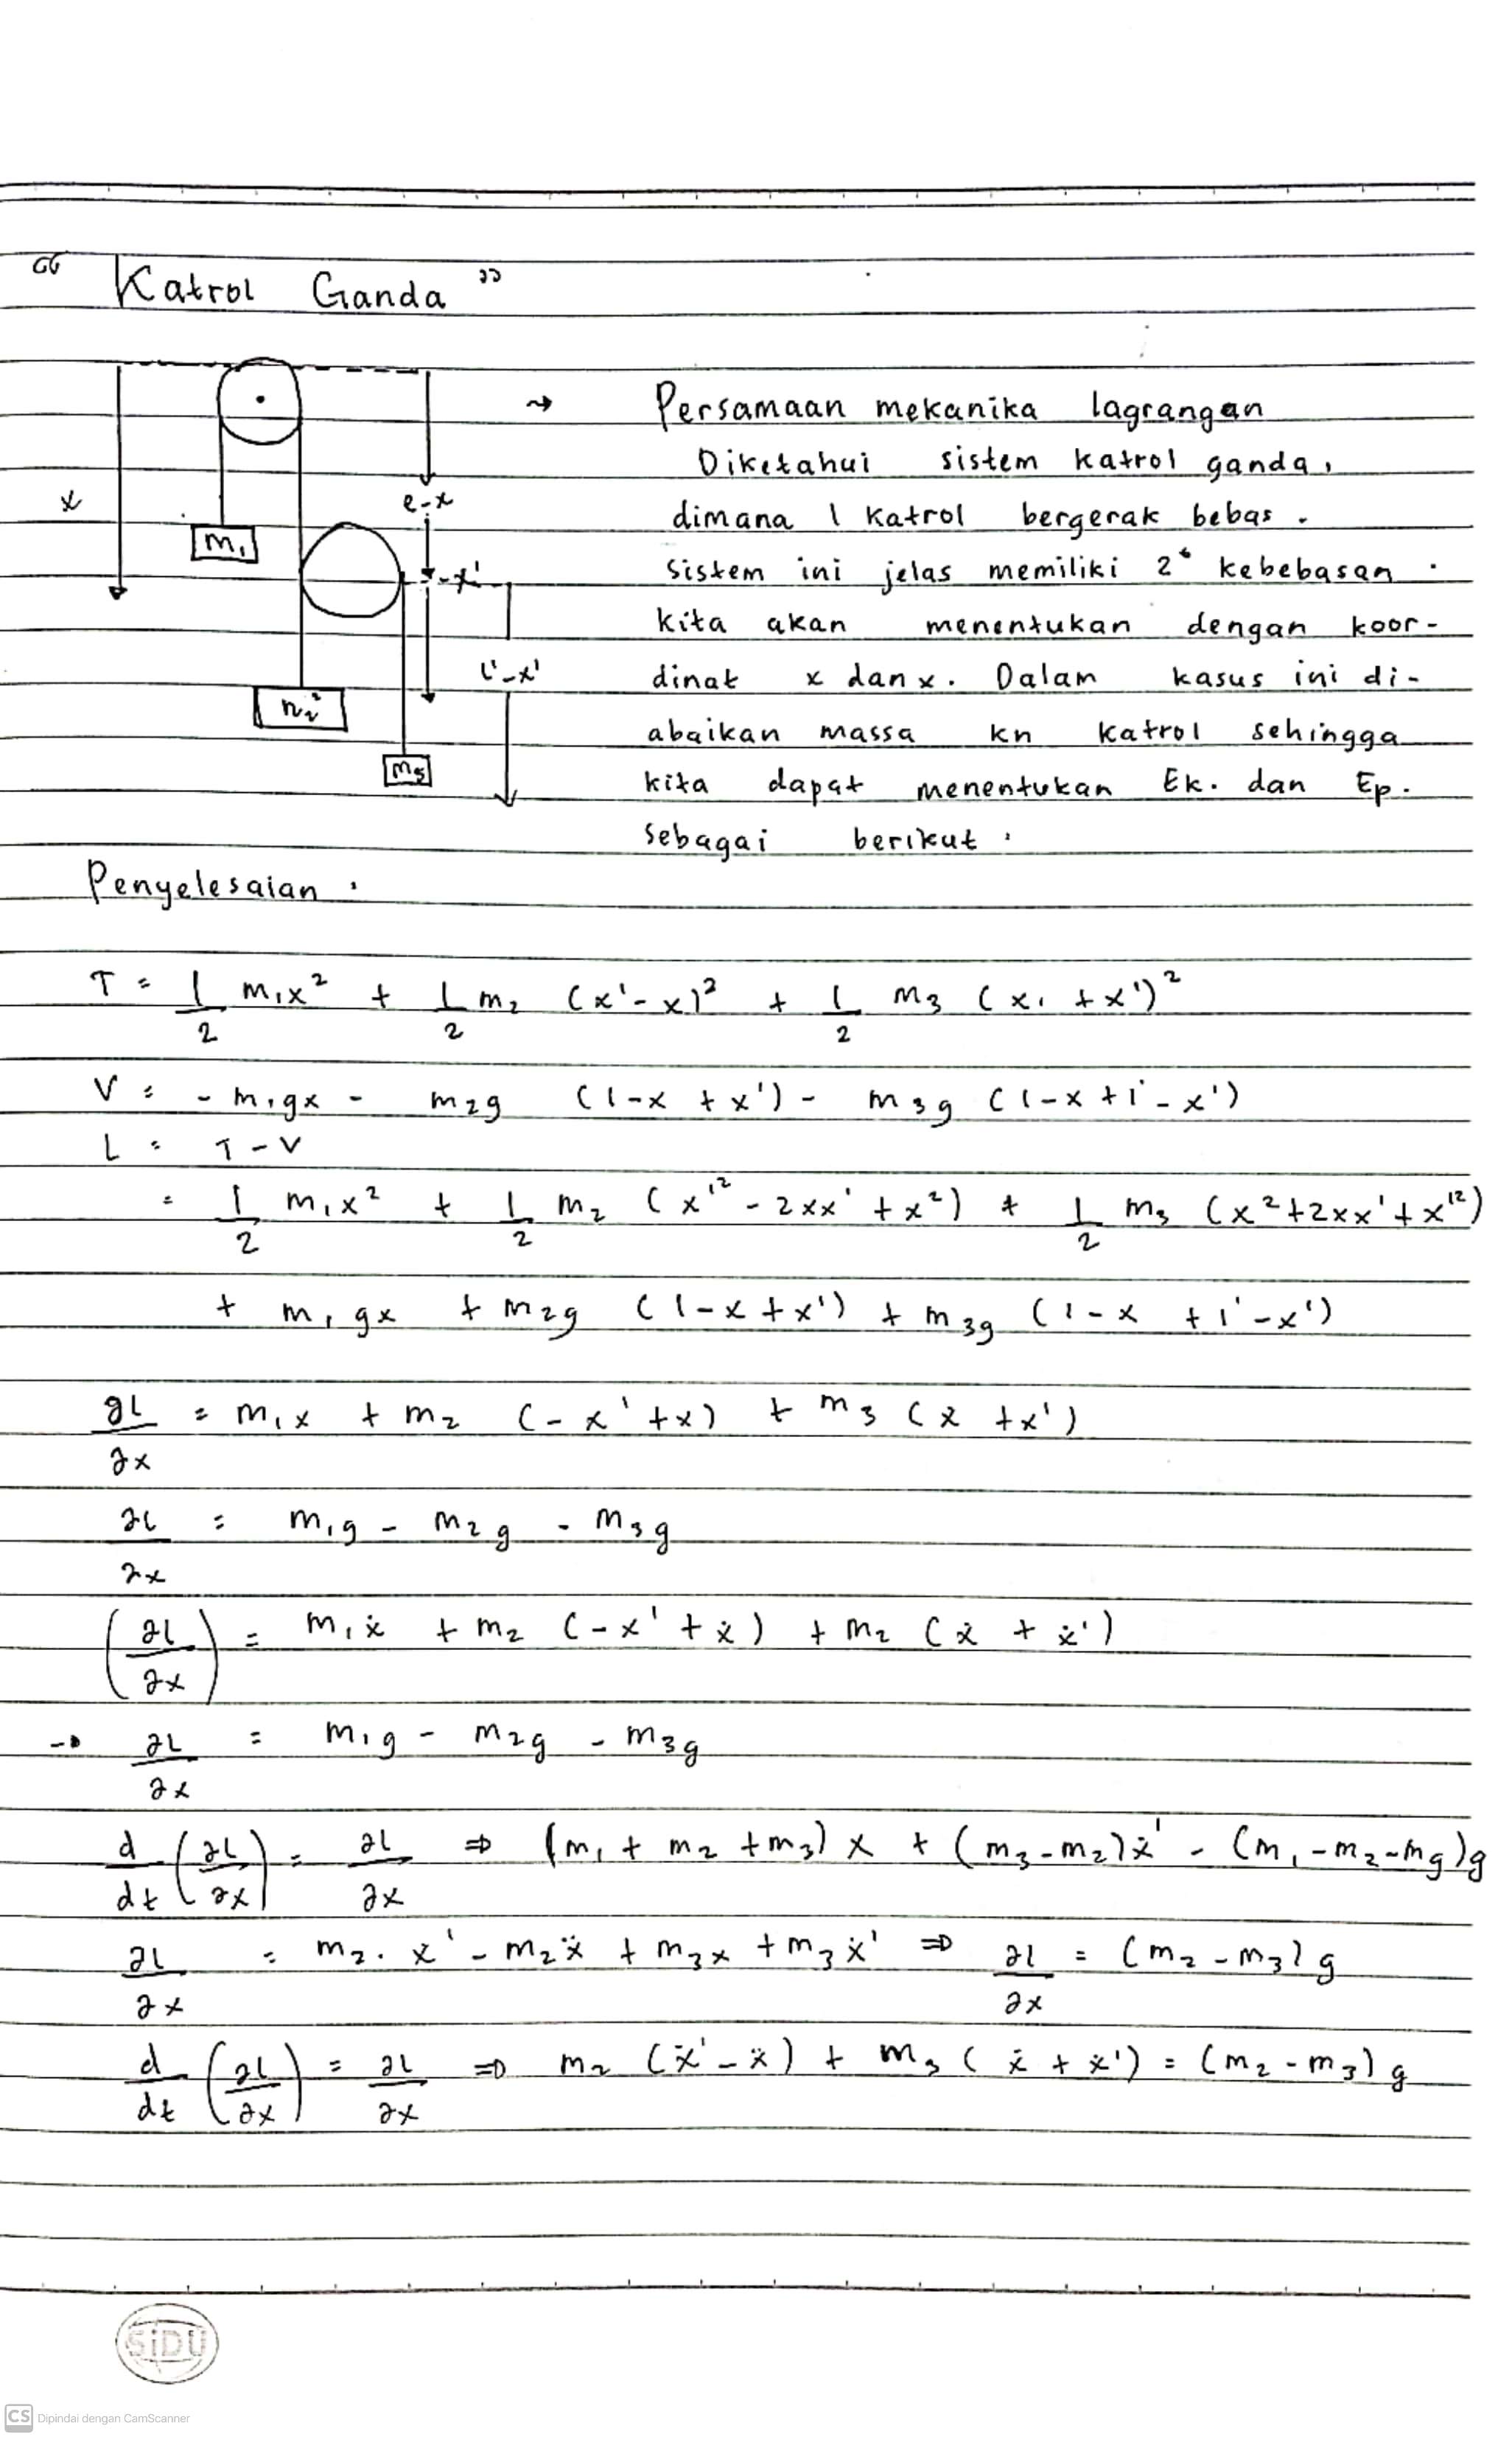 “ Katrol Ganda ”
x
m₁
m₂
m₃
e-x
-x'
l'-x'
→ Persamaan mekanika lagrangan
Diketahui sistem katrol ganda,
dimana 1 katrol bergerak bebas.
Sistem ini jelas memiliki 2° kebebasan.
kita akan menentukan dengan koor-
dinat x dan x. Dalam kasus ini di-
abaikan massa kn katrol sehingga
kita dapat menentukan Ek. dan Ep.
sebagai berikut :
Penyelesaian :
T = 1/2 m₁x² + 1/2 m₂ (x'-x)² + 1/2 m₃ (x. + x')²
V = - m₁gx - m₂g (1-x + x') - m₃g (1-x + 1' - x')
L = T - V
= 1/2 m₁x² + 1/2 m₂ (x'² - 2xx' + x²) + 1/2 m₃ (x²+2xx'+x'²)
+ m₁gx + m₂g (1-x+x') + m₃g (1-x + 1'-x')
∂L/∂x = m₁x + m₂ (-x' + x) + m₃ (ẋ + x')
∂L/∂x = m₁g - m₂g - m₃g
(∂L/∂x) = m₁ẋ + m₂ (-x' + ẋ) + m₂ (ẋ + ẋ')
→ ∂L/∂x = m₁g - m₂g - m₃g
d/dt (∂L/∂x) = ∂L/∂x ⇒ (m₁ + m₂ + m₃) x + (m₃-m₂)ẍ' - (m₁-m₂-mg)g
∂L/∂x = m₂. ẋ' - m₂ẍ + m₃x + m₃ẋ' ⇒ ∂L/∂x = (m₂ - m₃) g
d/dt (∂L/∂x) = ∂L/∂x ⇒ m₂ (ẍ' - ẍ) + m₃ (ẍ + ẍ') = (m₂ - m₃) g
SiDU
CS Dipindai dengan CamScanner